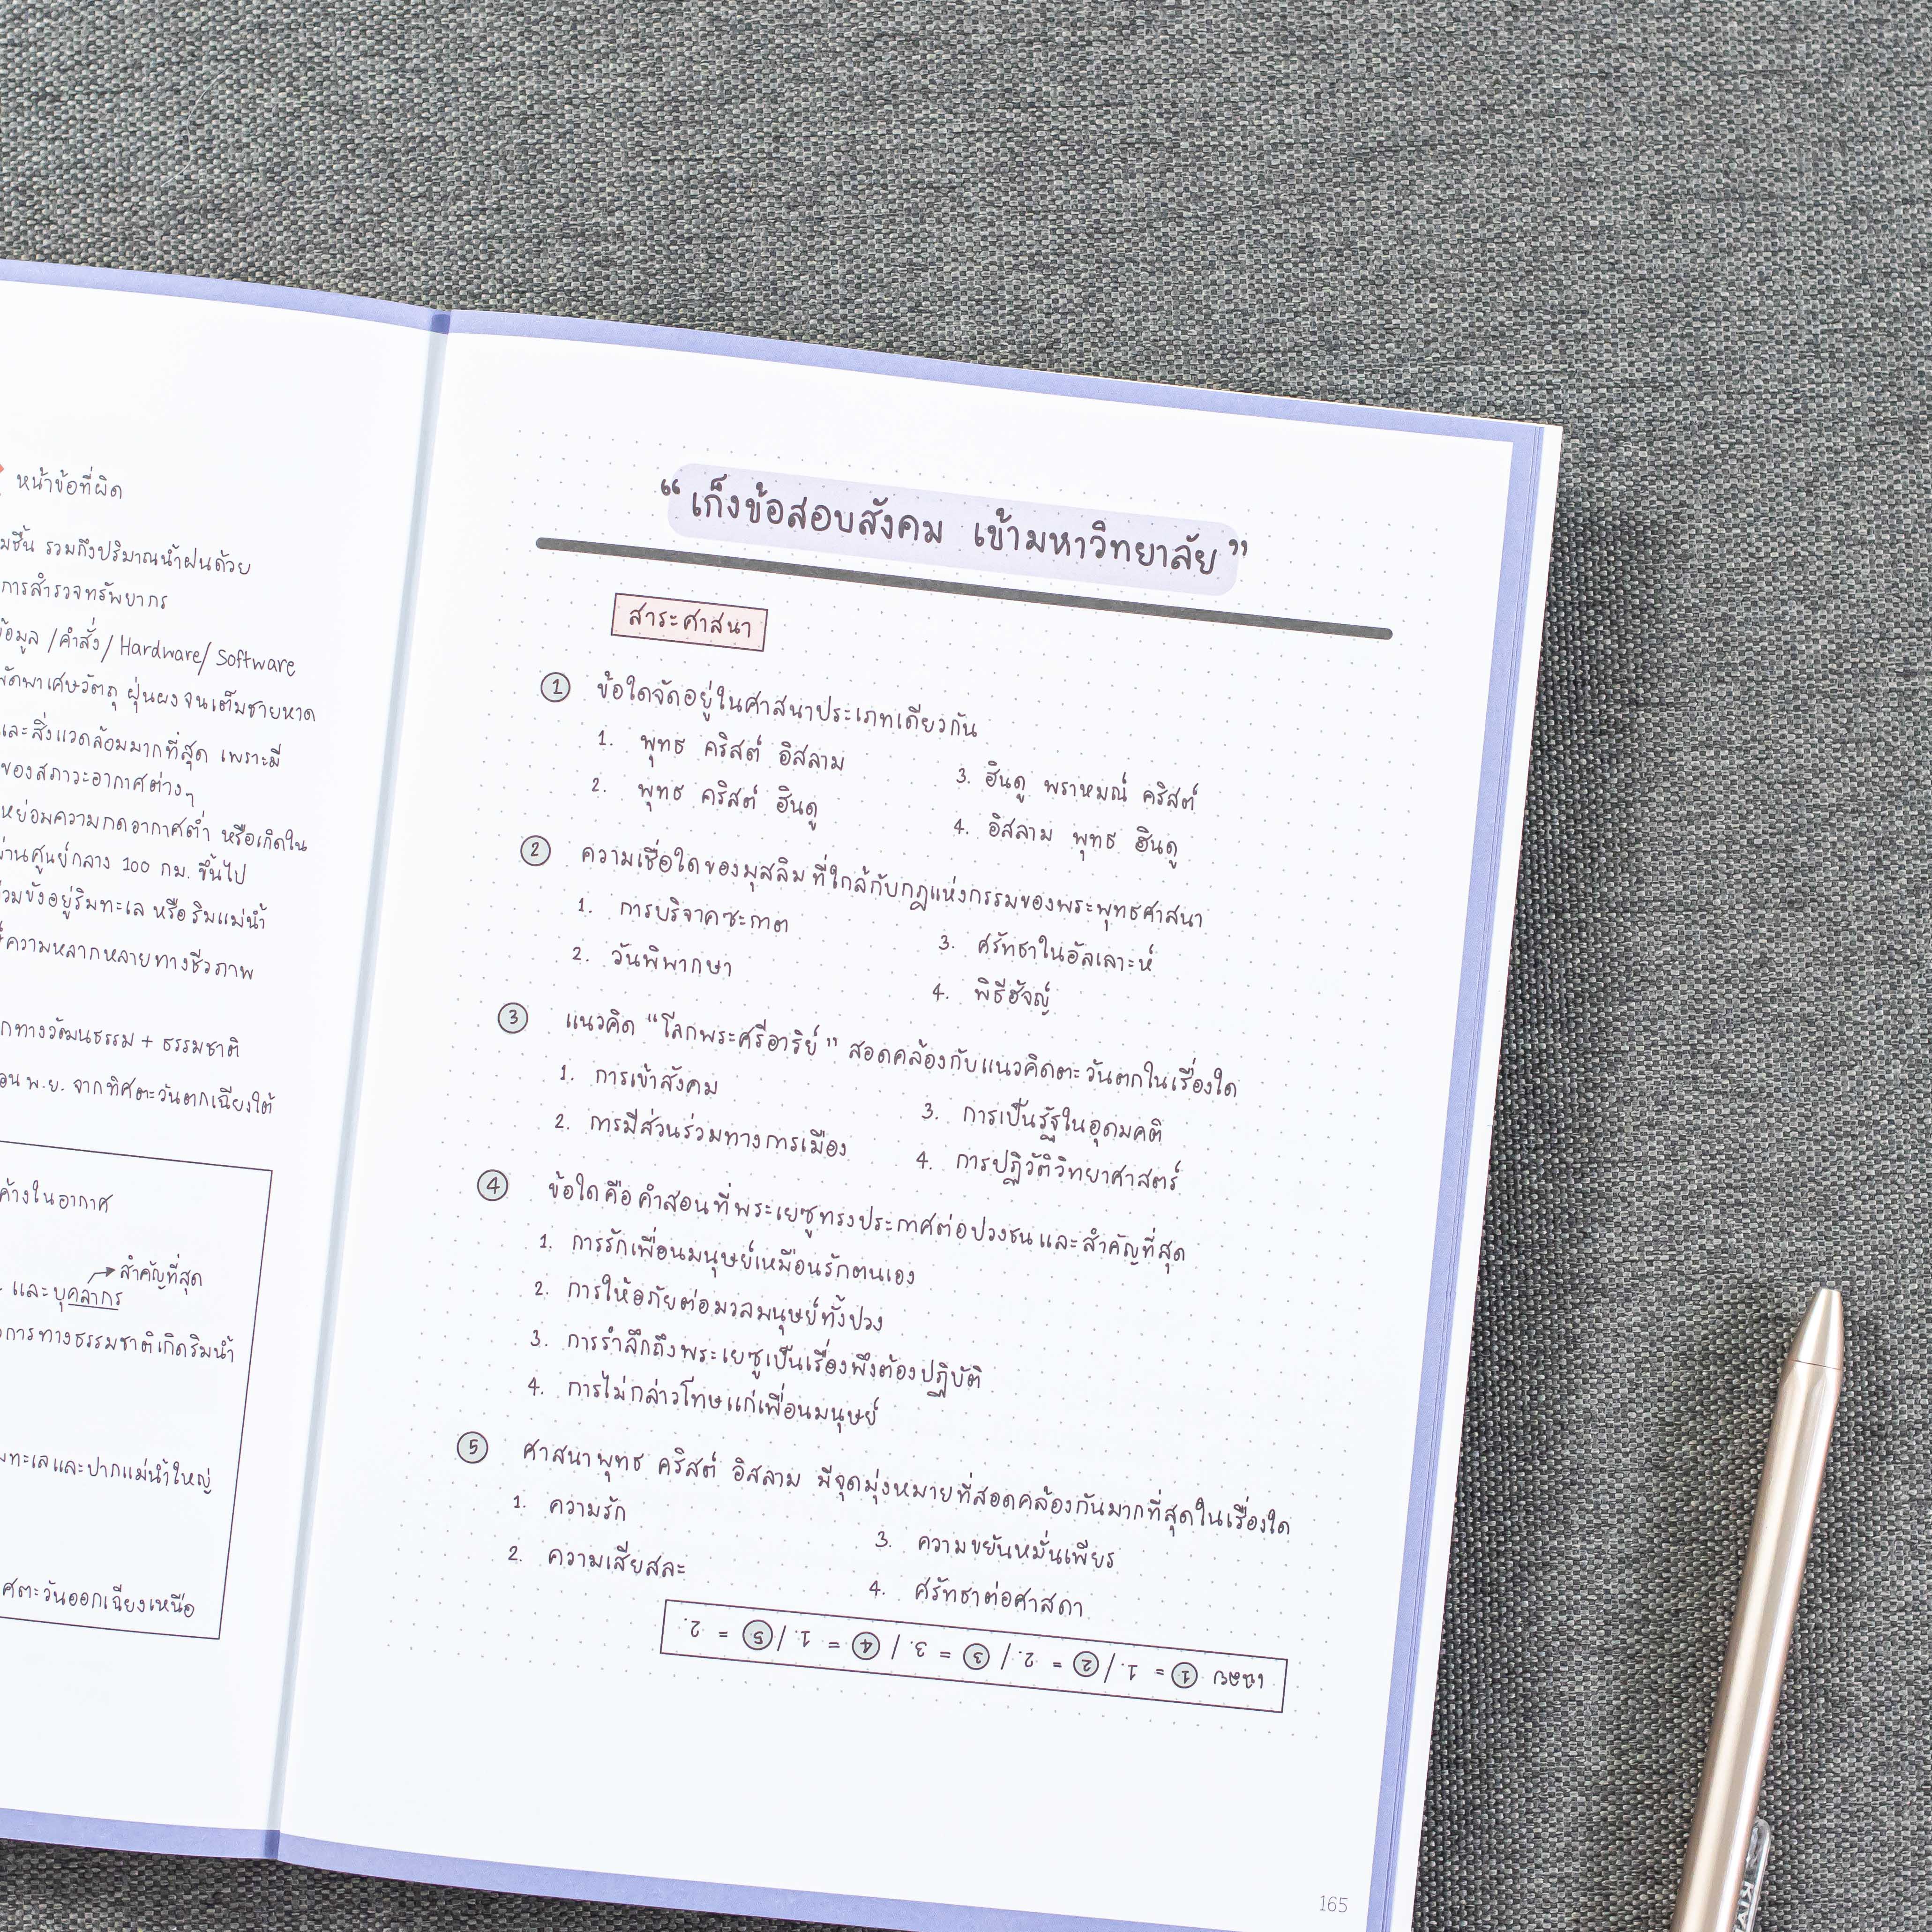 หน้าข้อที่ผิด
มชื้น รวมถึงปริมาณน้ำฝนด้วย
การสำรวจทรัพยากร
ข้อมูล /คำสั่ง/ Hardware/ Software
พัดพาเศษวัตถุ ฝุ่นผง จนเต็มชายหาด
และสิ่งแวดล้อมมากที่สุด เพราะมี
ของสภาวะอากาศต่างๆ
หย่อมความกดอากาศต่ำ หรือเกิดใน
ผ่านศูนย์กลาง 100 กม. ขึ้นไป
ท่วมขังอยู่ริมทะเล หรือ ริมแม่น้ำ
ความหลากหลายทางชีวภาพ
กทางวัฒนธรรม + ธรรมชาติ
อน พ.ย. จากทิศตะวันตกเฉียงใต้
ค้างในอากาศ
สำคัญที่สุด
และบุคลากร
การทางธรรมชาติเกิดริมน้ำ
มทะเลและปากแม่น้ำใหญ่
ศตะวันออกเฉียงเหนือ
“ เก็งข้อสอบสังคม เข้ามหาวิทยาลัย ”
สาระศาสนา
1 ข้อใดจัดอยู่ในศาสนาประเภทเดียวกัน
1. พุทธ คริสต์ อิสลาม
2. พุทธ คริสต์ ฮินดู
3. ฮินดู พราหมณ์ คริสต์
4. อิสลาม พุทธ ฮินดู
2 ความเชื่อใดของมุสลิมที่ใกล้กับกฎแห่งกรรมของพระพุทธศาสนา
1. การบริจาคซะกาต
2. วันพิพากษา
3. ศรัทธาในอัลเลาะห์
4. พิธีฮัจญ์
3 แนวคิด “ โลกพระศรีอาริย์ ” สอดคล้องกับแนวคิดตะวันตกในเรื่องใด
1. การเข้าสังคม
2. การมีส่วนร่วมทางการเมือง
3. การเป็นรัฐในอุดมคติ
4. การปฏิวัติวิทยาศาสตร์
4 ข้อใด คือ คำสอน ที่ พระเยซูทรงประกาศต่อปวงชน และ สำคัญที่สุด
1. การรักเพื่อนมนุษย์เหมือนรักตนเอง
2. การให้อภัยต่อมวลมนุษย์ทั้งปวง
3. การรำลึกถึงพระเยซูเป็นเรื่องพึงต้องปฏิบัติ
4. การไม่กล่าวโทษแก่เพื่อนมนุษย์
5 ศาสนาพุทธ คริสต์ อิสลาม มีจุดมุ่งหมายที่สอดคล้องกันมากที่สุดในเรื่องใด
1. ความรัก
2. ความเสียสละ
3. ความขยันหมั่นเพียร
4. ศรัทธาต่อศาสดา
เฉลย 1 = 1. / 2 = 2. / 3 = 3. / 4 = 1. / 5 = 2.
165